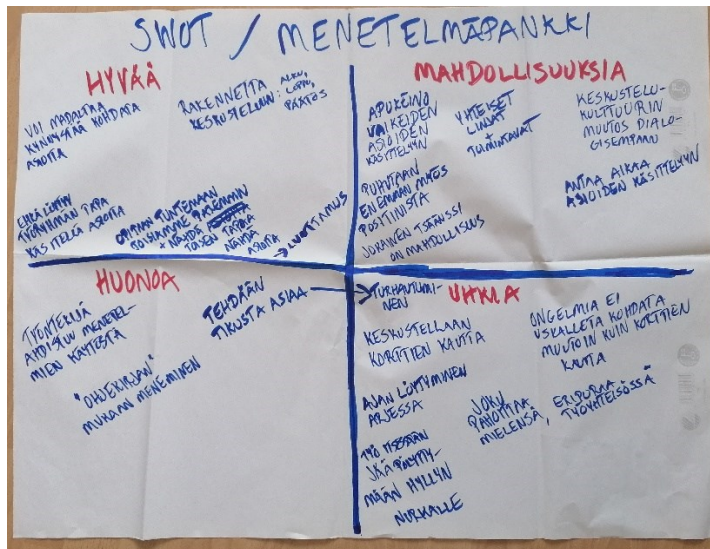 SWOT / MENETELMÄPANKKI
HYVÄÄ
VOI MADALTAA
KYNNYSTÄ KOHDATA
ASIOITA
RAKENNETTA
KESKUSTELUUN: ALKU,
LOPPU,
PÄÄTÖS
EHKÄ LÖYTYY
TYÖRYHMÄN TAPA
KÄSITELLÄ ASIOITA
OPITAAN TUNTEMAAN
TOISIAMME PAREMMIN
+ NÄHDÄ
TOISEN TAPAA
NÄHDÄ
ASIOITA
→ LUOTTAMUS
MAHDOLLISUUKSIA
APUKEINO
VAIKEIDEN
ASIOIDEN
KÄSITTELYYN
YHTEISET
LINJAT
TOIMINTAVAT
KESKUSTELU-
KULTTUURIN
MUUTOS DIALO-
GISEMPAAN
PUHUTAAN
ENEMMÄN MYÖS
POSITIIVISTA
ANTAA AIKAA
ASIOIDEN KÄSITTELYYN
JOKAINEN TSÄÄNSSI
ON MAHDOLLISUUS
HUONOA
TYÖNTEKIJÄ
AHDISTUU MENETEL-
MIEN KÄYTÖSTÄ
TEHDÄÄN
TIKUSTA ASIAA
"OHJEKIRJAN"
MUKAAN MENEMINEN
UHKIA
TURHAUTUMI-
NEN
KESKUSTELLAAN
KORTTIEN KAUTTA
ONGELMIA EI
USKALLETA KOHDATA
MUUTOIN KUIN KORTTIEN
KAUTTA
AJAN LÖYTYMINEN
ARJESSA
JOKU
PAHOITTAA
MIELENSÄ, ERIPURAA
TYÖYHTEISÖSSÄ
TYÖ ITSESSÄÄN
JÄÄ PÖLYTTY-
MÄÄN HYLLYN
NURKALLE